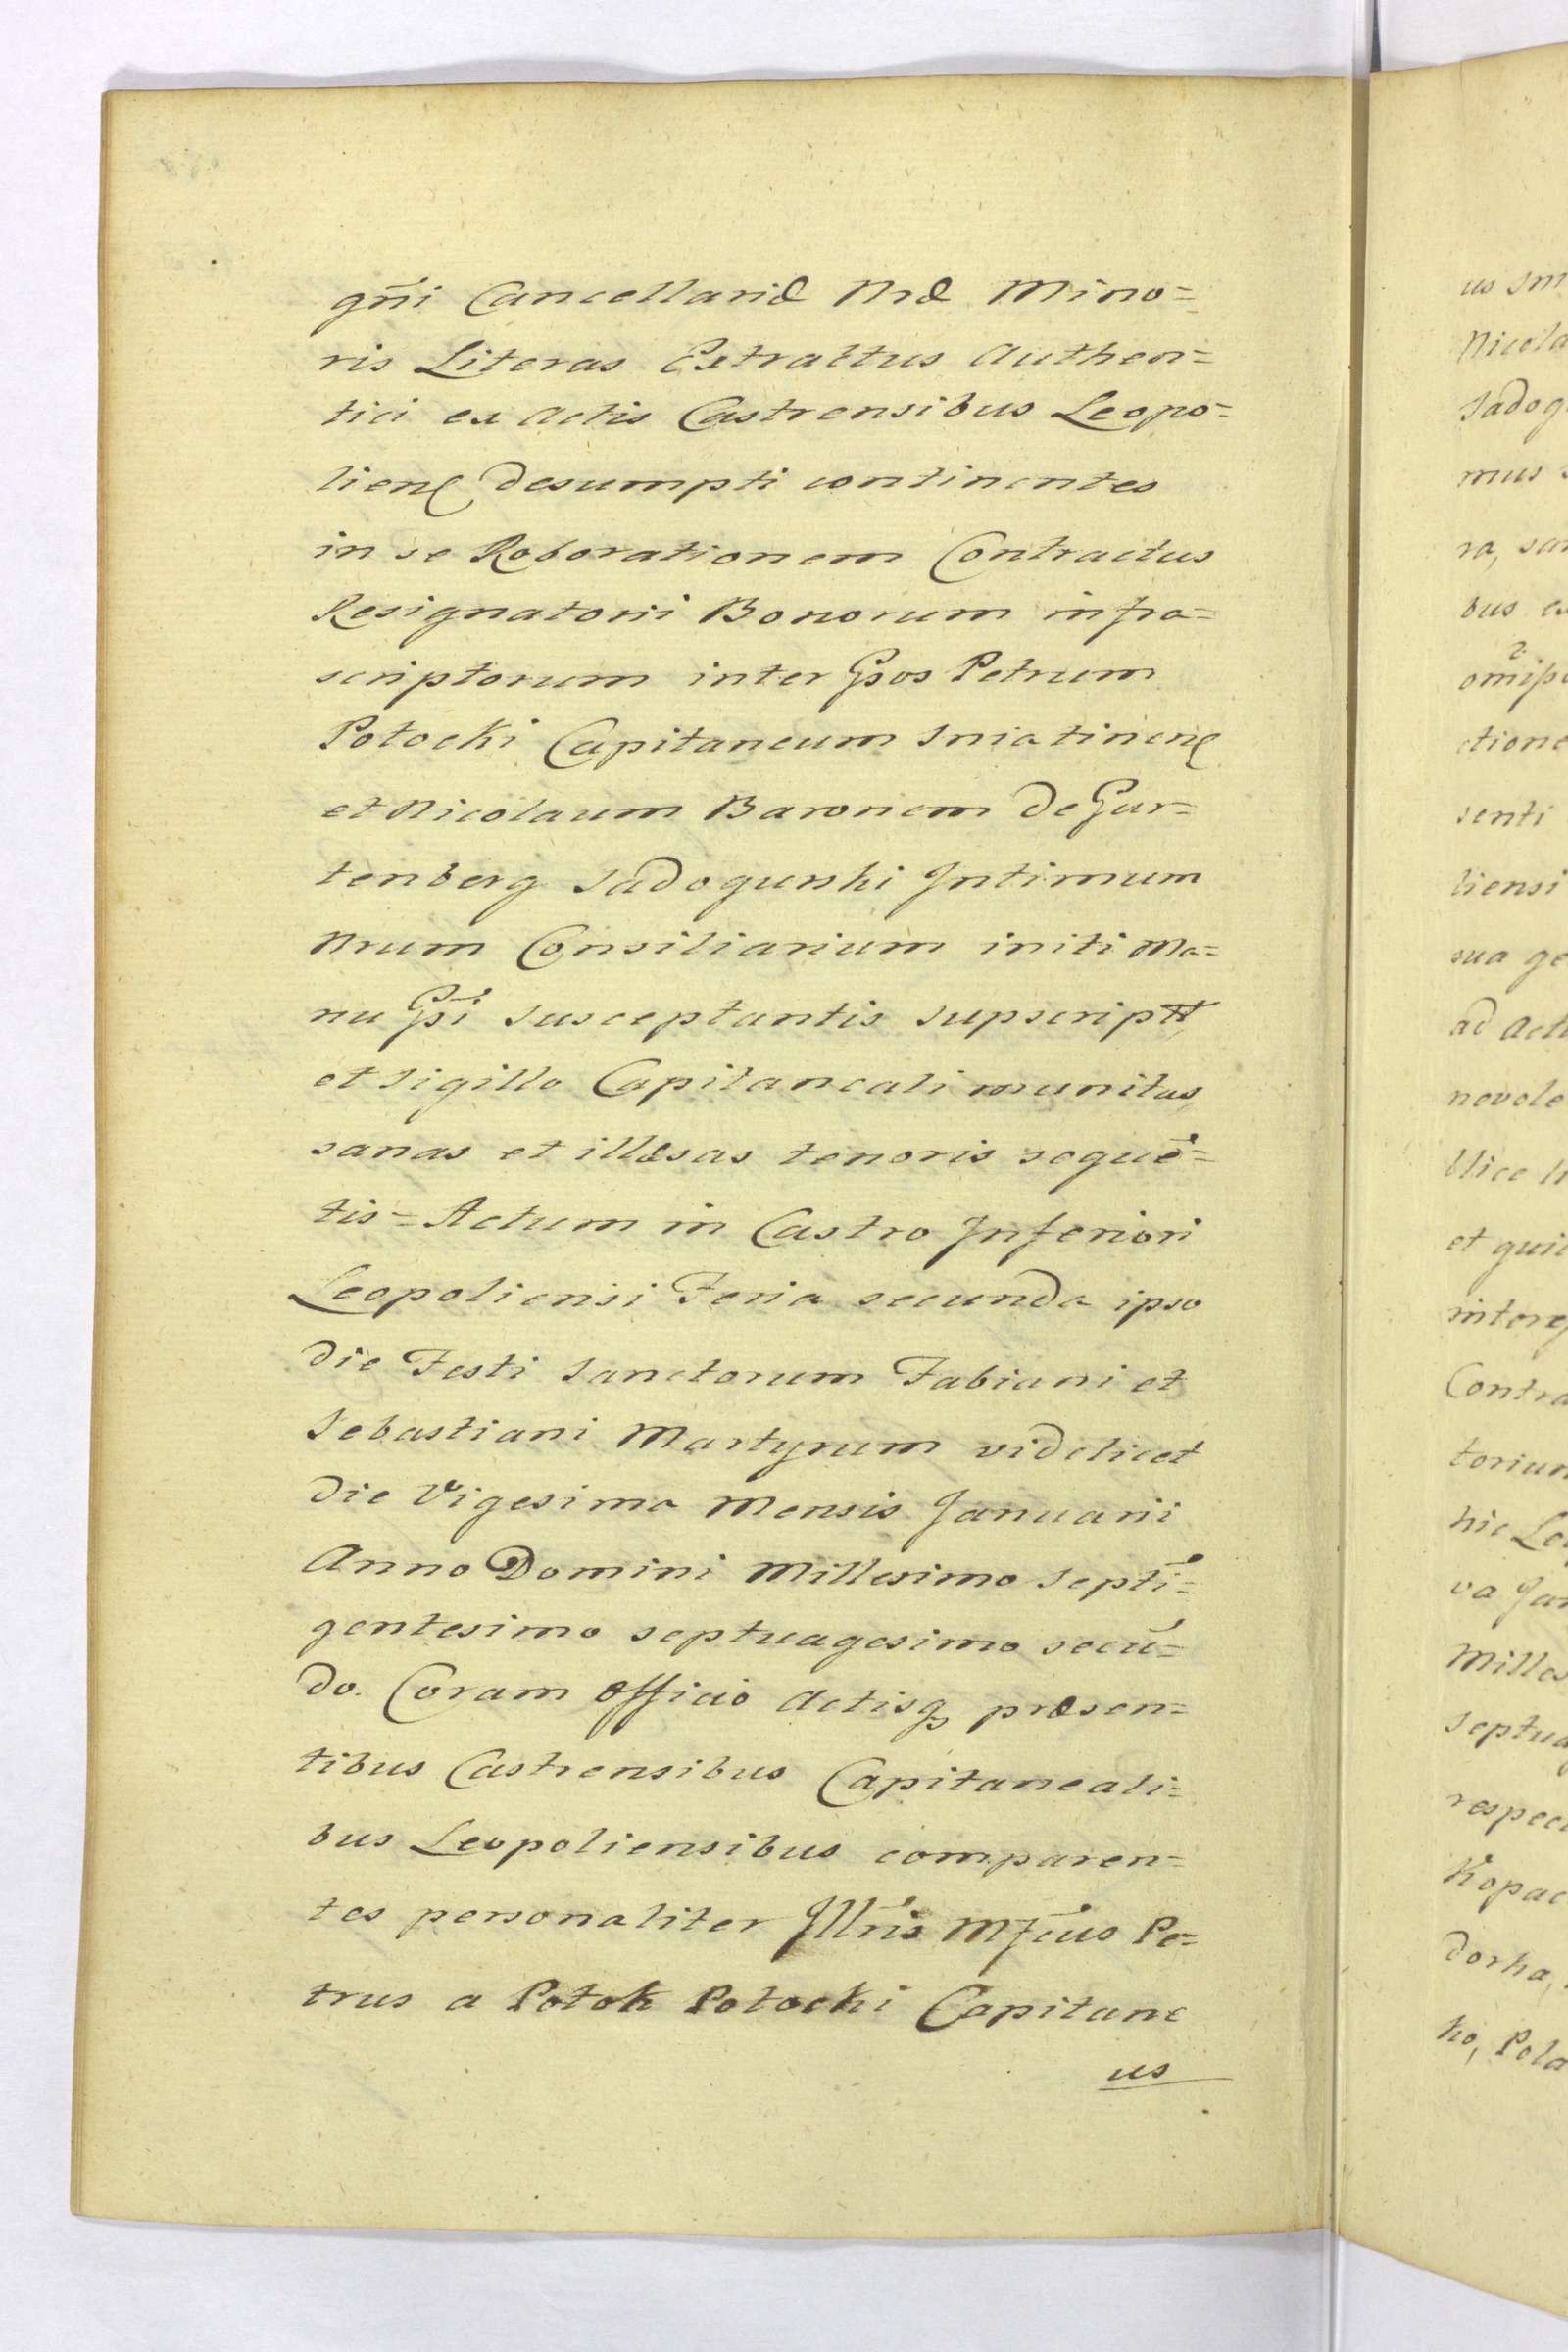 gn̄i Cancellariæ Nræ Mino=
ris Literas Extraltus Authen=
tici ex Actis Castrensibus Leopo=
lienẽ desumpti continentes
in se Roborationem Contractus
Resignatorii Bonorum infra=
scriptorum inter Gsos Petrum
Potocki Capitaneum Sniatinenẽ
et Nicolaum Baronem De Gar=
tenberg Sadogurski Intimum
Nrum Consiliarium initi Ma=
nu Gsi susceptantis supscriptt,
et Sigillo Capitaneali munitas,
sanas et illæsas tenoris sequē=
tis= Actum in Castro Inferiori
Leopoliensi Feria secunda ipso
die Festi Sanctorum Fabiani et
Sebastiani Martyrum videlicet
die Vigesima Mensis Januarii
Anno Domini Millesimo Septī=
gentesimo septuagesimo secū=
do. Coram Officio Actisqꝫ præsen=
tibus Castrensibus Capitaneali=
bus Leopoliensibus comparen=
tes personaliter Illr̄is Mfcus Pe=
trus a Potok Potocki Capitane
us
us Sni
Nicola
Sadog
mus
ra, sa
bus e
omīp
ctione
senti
liensi
sua ge
ad Act
nevole
Vice
et qui
Contra
toriu
hic Le
va Jan
Milles
Septua
respec
Kopac
dorka,
ko, Pola